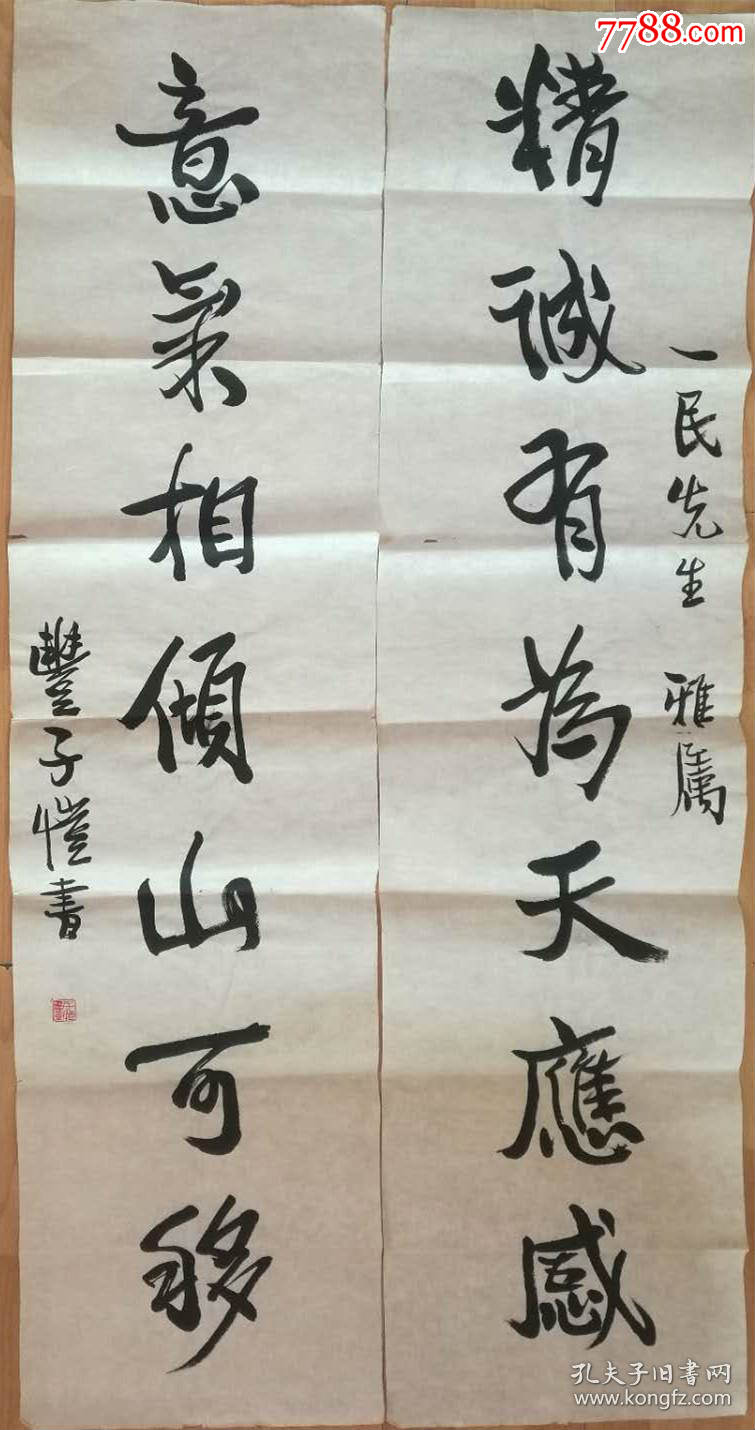 7788.com
一民先生 雅属
精诚有為天應感
意氣相傾山可移
豐子愷書
孔夫子旧书网
www.kongfz.com